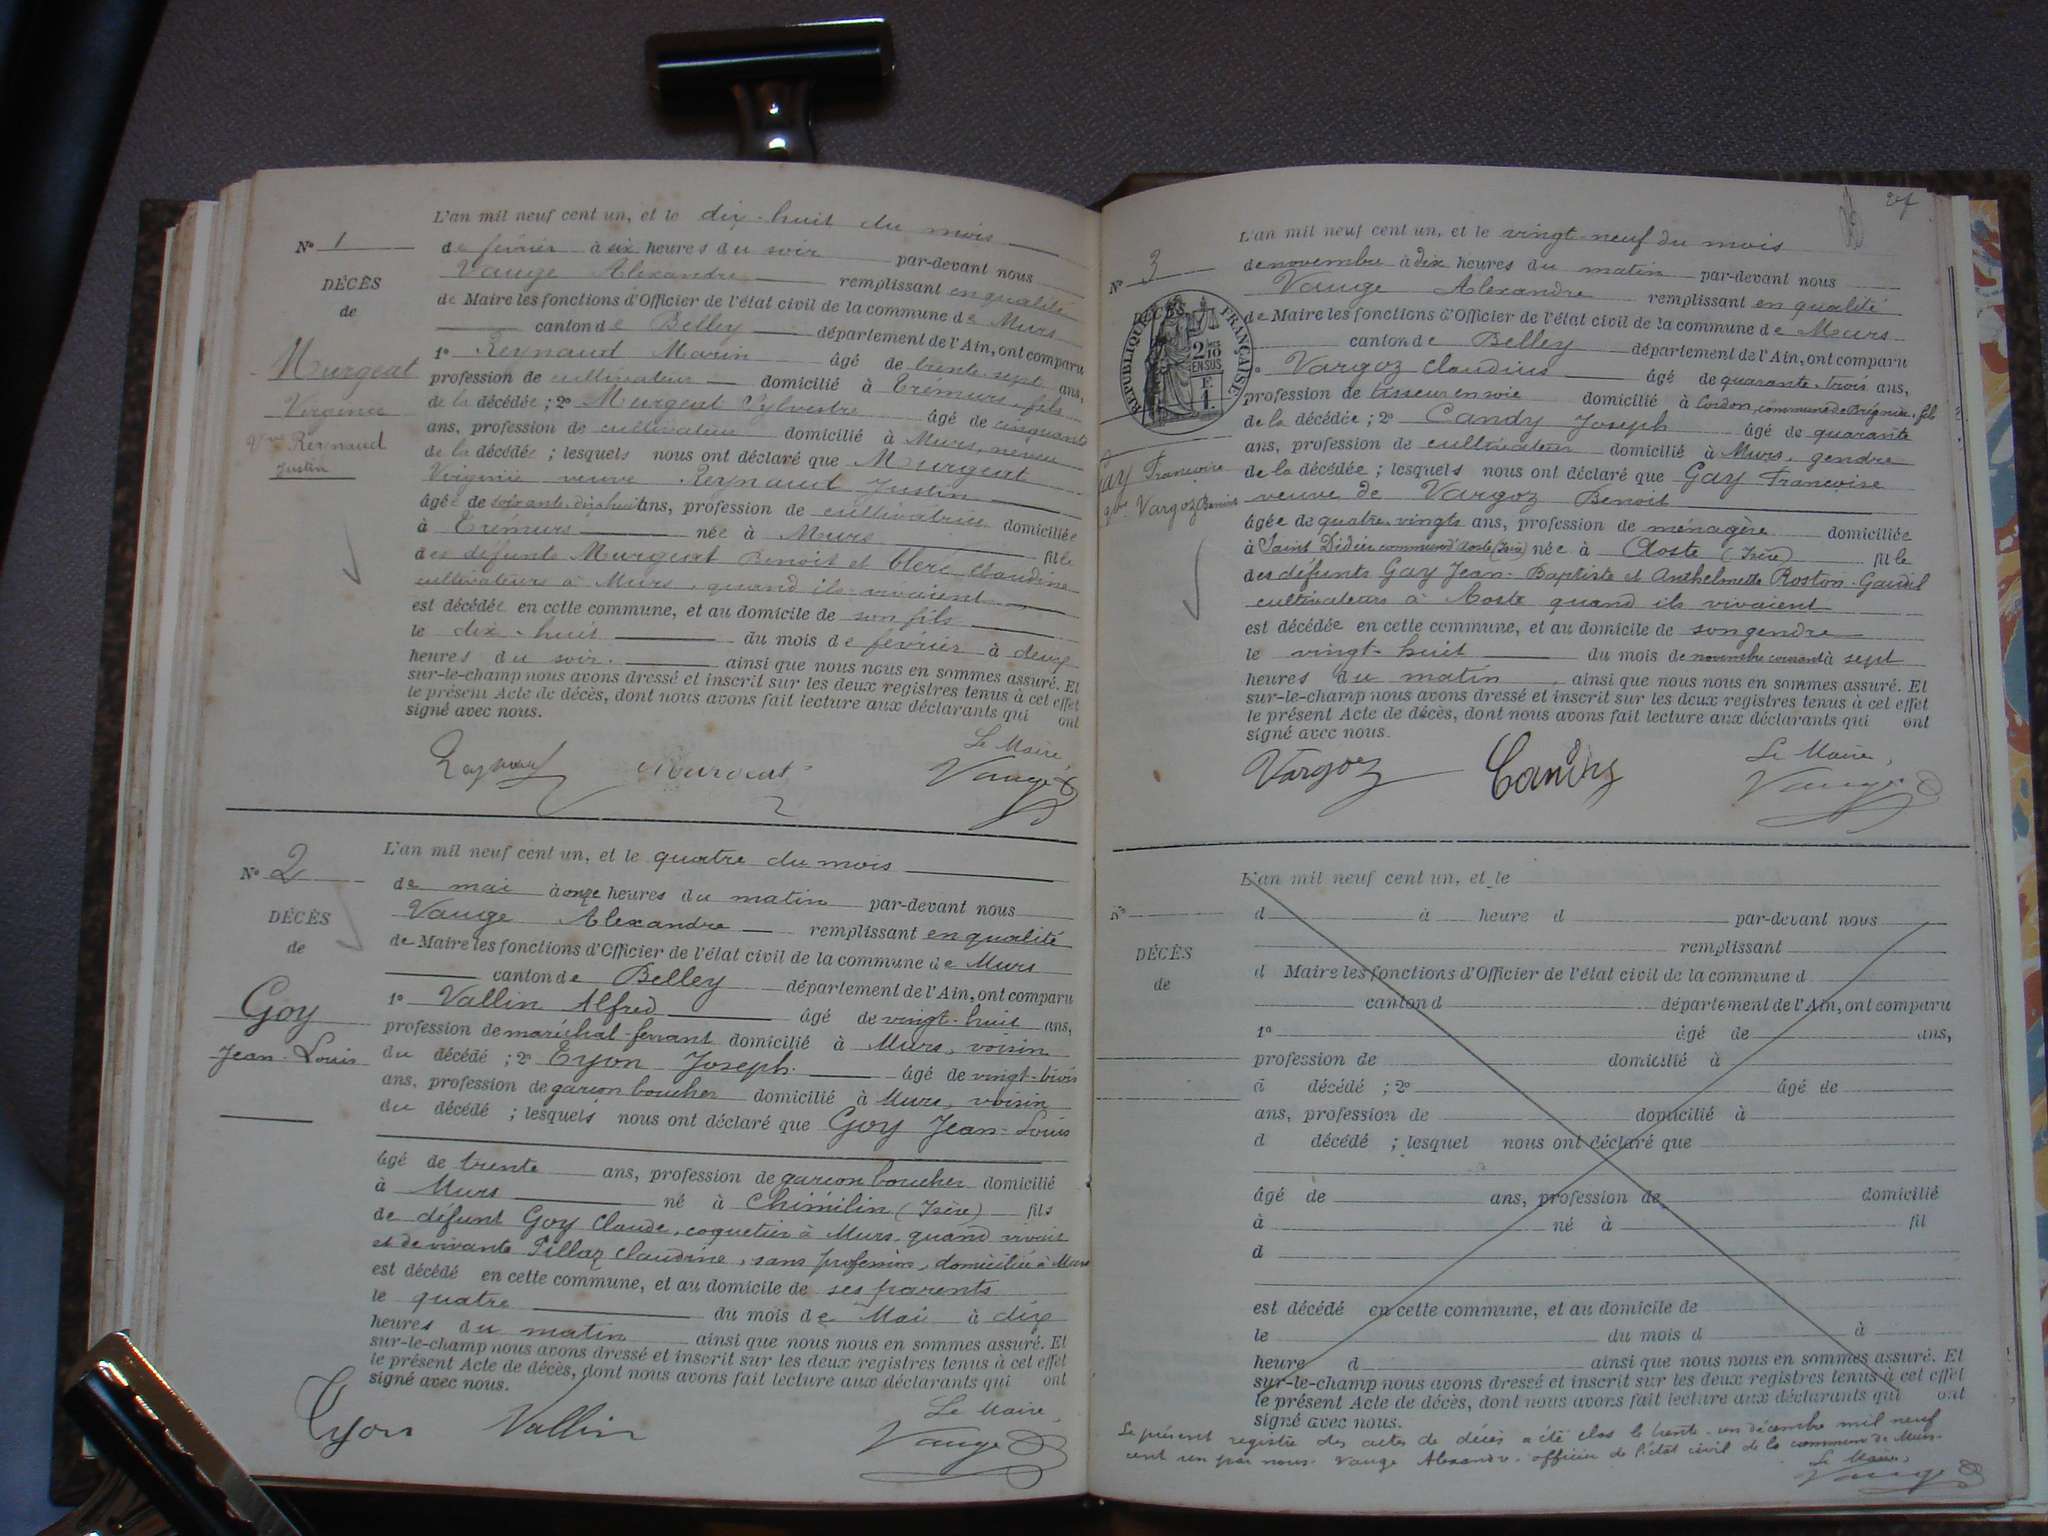 L'an mil neuf cent un, et le dix-huit du mois
N° 1
de février à six heures du soir par-devant nous
DÉCÈS
Vauge Alexandre remplissant en qualité
de
de Maire les fonctions d'Officier de l'état civil de la commune de Murs
canton de Belley département de l'Ain, ont comparu
Murgeat
1° Reynaud Marin âgé de trente-sept ans,
profession de cultivateur domicilié à Trémurs, fils
Virginie
de la décédée ; 2° Murgeat Sylvestre âgé de cinquante
Vve Reynaud
ans, profession de cultivateur domicilié à Murs, neveu
Justin
de la décédée ; lesquels nous ont déclaré que Murgeat
Virginie veuve Reynaud Justin
âgée de soixante-dix-huit ans, profession de cultivatrice domiciliée
à Trémurs née à Murs fille
des défunts Murgeat Benoit et Cléré Claudine
cultivateurs à Murs, quand ils vivaient
est décédée en cette commune, et au domicile de son fils
le dix-huit du mois de février à deux
heures du soir. ainsi que nous nous en sommes assuré. Et
sur-le-champ nous avons dressé et inscrit sur les deux registres tenus à cet effet
le présent Acte de décès, dont nous avons fait lecture aux déclarants qui ont
signé avec nous.
Le Maire,
Murgeat
Vauge
L'an mil neuf cent un, et le quatre du mois
N° 2
de mai à onze heures du matin par-devant nous
DÉCÈS
Vauge Alexandre remplissant en qualité
de
de Maire les fonctions d'Officier de l'état civil de la commune de Murs
canton de Belley département de l'Ain, ont comparu
Goy
1° Vallin Alfred âgé de vingt-huit ans,
profession de maréchal-ferrant domicilié à Murs, voisin
Jean-Louis
du décédé ; 2° Eyon Joseph. âgé de vingt-trois
ans, profession de garçon boucher domicilié à Murs, voisin
du décédé ; lesquels nous ont déclaré que Goy Jean-Louis
âgé de trente ans, profession de garçon boucher domicilié
à Murs né à Chimilin (Isère) fils
de défunt Goy Claude, coquetier à Murs quand vivait
et de vivante Pillaz Claudine, sans profession, domiciliée à Murs
est décédé en cette commune, et au domicile de ses parents
le quatre du mois de Mai à dix
heures du matin ainsi que nous nous en sommes assuré. Et
sur-le-champ nous avons dressé et inscrit sur les deux registres tenus à cet effet
le présent Acte de décès, dont nous avons fait lecture aux déclarants qui ont
signé avec nous.
Le Maire,
Eyon Vallin Vauge
L'an mil neuf cent un, et le vingt-neuf du mois
N° 3
de novembre à dix heures du matin par-devant nous
Vauge Alexandre remplissant en qualité
DÉCÈS
RÉPUBLIQUE FRANÇAISE
2/10 EN SUS
F. 1.
de Maire les fonctions d'Officier de l'état civil de la commune de Murs
canton de Belley département de l'Ain, ont comparu
Vargoz Claudius âgé de quarante-trois ans,
profession de tisseur en soie domicilié à Cordon, commune de Brégnier, fils
de la décédée ; 2° Candy Joseph âgé de quarante
ans, profession de cultivateur domicilié à Murs, gendre
Gay Françoise
de la décédée ; lesquels nous ont déclaré que Gay Françoise
Vargoz Benoit
veuve de Vargoz Benoit
âgée de quatre-vingts ans, profession de ménagère domiciliée
à Saint Didier commune d'Aoste (Isère) née à Aoste (Isère) fille
des défunts Gay Jean-Baptiste et Anthelmette Roston-Gandil
cultivateurs à Aoste quand ils vivaient
est décédée en cette commune, et au domicile de son gendre
le vingt-huit du mois de novembre courant à sept
heures du matin, ainsi que nous nous en sommes assuré. Et
sur-le-champ nous avons dressé et inscrit sur les deux registres tenus à cet effet
le présent Acte de décès, dont nous avons fait lecture aux déclarants qui ont
signé avec nous.
Le Maire,
Vargoz Candy Vauge
L'an mil neuf cent un, et le
N°
d à heure d par-devant nous
remplissant
DÉCÈS
d Maire les fonctions d'Officier de l'état civil de la commune d
de
canton d département de l'Ain, ont comparu
1° âgé de ans,
profession de domicilié à
d décédé ; 2° âgé de
ans, profession de domicilié à
d décédé ; lesquel nous ont déclaré que
âgé de ans, profession de domicilié
à né à fil
d
est décédé en cette commune, et au domicile de
le du mois d à
heure d ainsi que nous nous en sommes assuré. Et
sur-le-champ nous avons dressé et inscrit sur les deux registres tenus à cet effet
le présent Acte de décès, dont nous avons fait lecture aux déclarants qui ont
signé avec nous.
Le présent registre des actes de décès a été clos le trente-un décembre mil neuf
cent un par nous Vauge Alexandre officier de l'état civil de la commune de Murs.
Le Maire,
Vauge